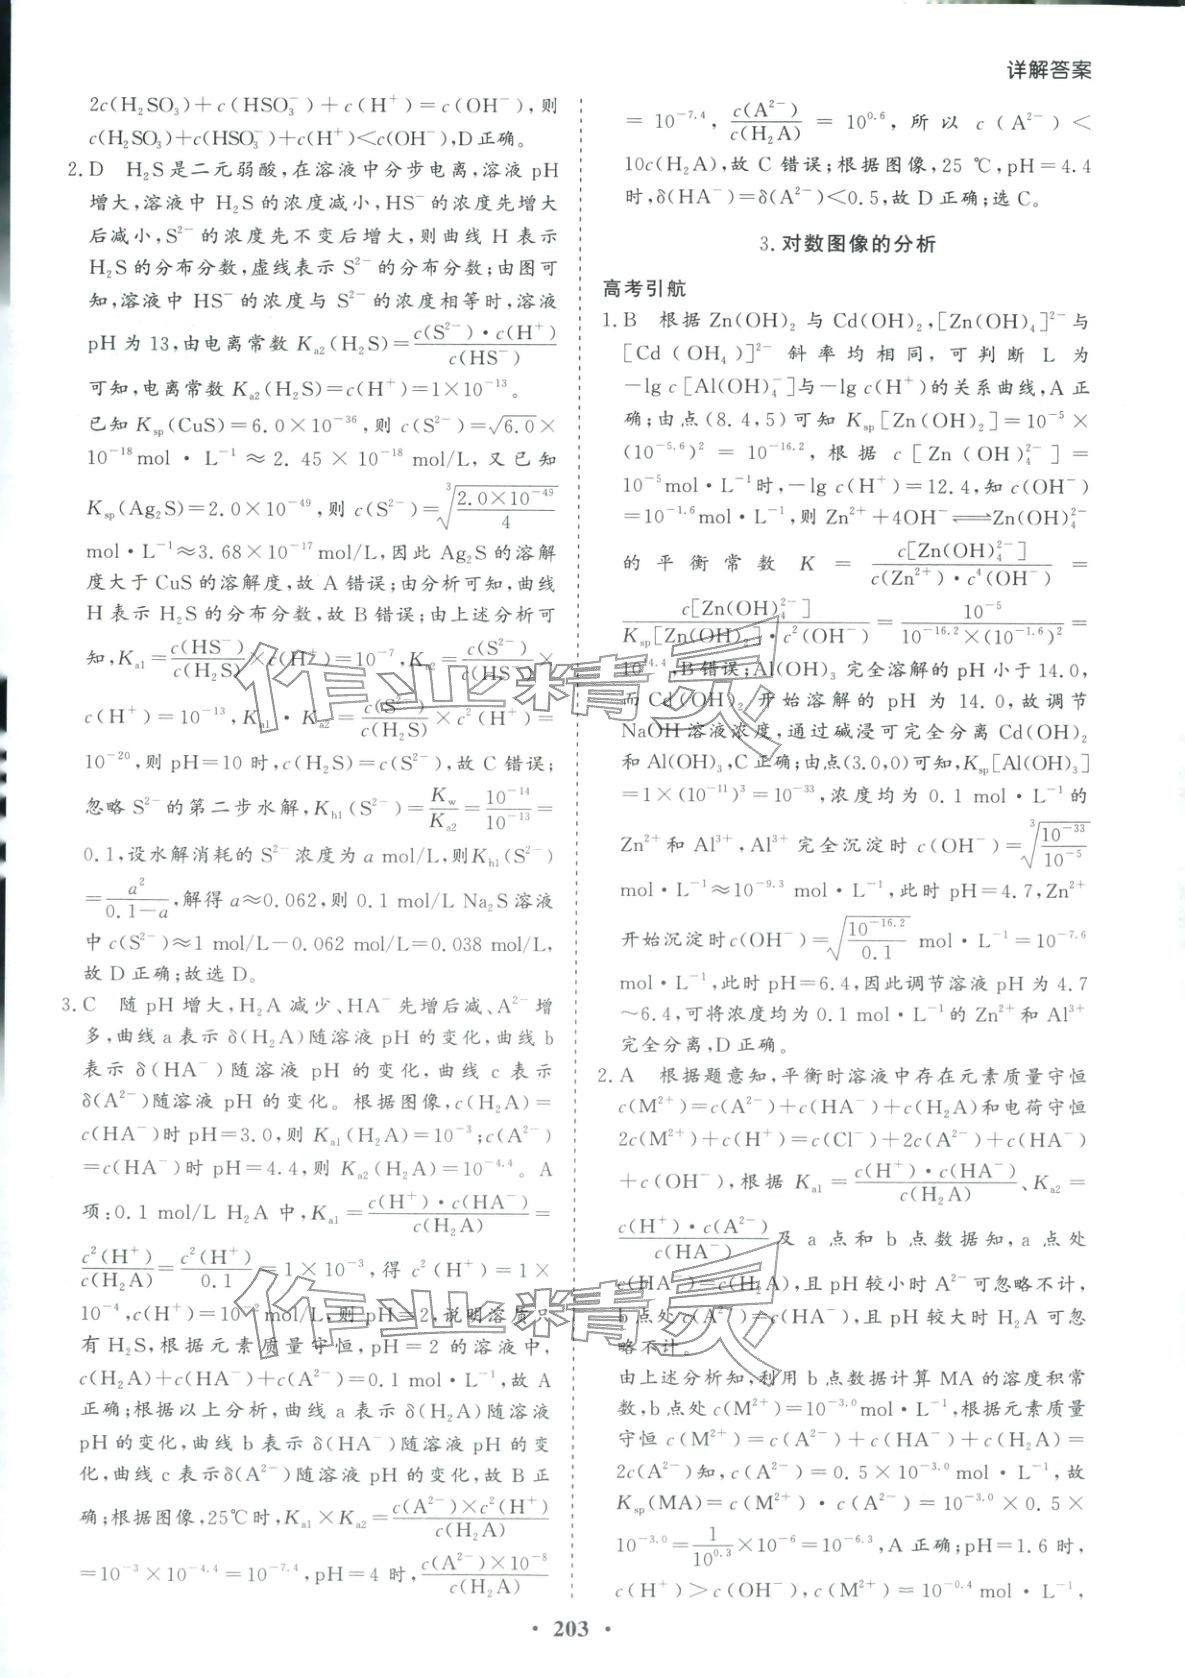 详解答案
2c(H₂SO₃)+c(HSO₃⁻)+c(H⁺)=c(OH⁻),则
c(H₂SO₃)+c(HSO₃⁻)+c(H⁺)<c(OH⁻),D正确。
2.D H₂S是二元弱酸,在溶液中分步电离,溶液 pH
增大,溶液中 H₂S的浓度减小,HS⁻的浓度先增大
后减小,S²⁻的浓度先不变后增大,则曲线 H 表示
H₂S的分布分数,虚线表示 S²⁻的分布分数;由图可
知,溶液中 HS⁻的浓度与 S²⁻的浓度相等时,溶液
pH为13,由电离常数 Kₐ₂(H₂S)=c(S²⁻)·c(H⁺)/c(HS⁻)
可知,电离常数 Kₐ₂(H₂S)=c(H⁺)=1×10⁻¹³。
已知 Ksp(CuS)=6.0×10⁻³⁶,则 c(S²⁻)=√6.0×
10⁻¹⁸mol·L⁻¹≈2.45×10⁻¹⁸ mol/L,又已知
Ksp(Ag₂S)=2.0×10⁻⁴⁹,则 c(S²⁻)=∛(2.0×10⁻⁴⁹/4)
mol·L⁻¹≈3.68×10⁻¹⁷mol/L,因此 Ag₂S的溶解
度大于CuS的溶解度,故 A错误;由分析可知,曲线
H表示 H₂S的分布分数,故B错误;由上述分析可
知,Kₐ₁=c(HS⁻)/c(H₂S)×c(H⁺)=10⁻⁷,Kₐ₂=c(S²⁻)/c(HS⁻)×
c(H⁺)=10⁻¹³,Kₐ₁·Kₐ₂=c(S²⁻)/c(H₂S)×c²(H⁺)=
10⁻²⁰,则 pH=10时,c(H₂S)=c(S²⁻),故 C错误;
忽略 S²⁻的第二步水解,Kh₁(S²⁻)=Kw/Kₐ₂=10⁻¹⁴/10⁻¹³=
0.1,设水解消耗的 S²⁻浓度为 a mol/L,则Kh₁(S²⁻)
=a²/(0.1-a),解得 a≈0.062,则0.1 mol/L Na₂S溶液
中c(S²⁻)≈1 mol/L-0.062 mol/L=0.038 mol/L,
故 D正确;故选D。
3.C 随 pH 增大,H₂A 减少、HA⁻先增后减、A²⁻增
多,曲线a表示δ(H₂A)随溶液 pH 的变化,曲线 b
表示 δ(HA⁻)随溶液 pH 的变化,曲线 c 表示
δ(A²⁻)随溶液 pH 的变化。根据图像,c(H₂A)=
c(HA⁻)时pH=3.0,则 Kₐ₁(H₂A)=10⁻³;c(A²⁻)
=c(HA⁻)时 pH=4.4,则 Kₐ₂(H₂A)=10⁻⁴·⁴。A
项:0.1 mol/L H₂A 中,Kₐ₁=c(H⁺)·c(HA⁻)/c(H₂A)=
c²(H⁺)/c(H₂A)=c²(H⁺)/0.1=1×10⁻³,得 c²(H⁺)=1×
10⁻⁴,c(H⁺)=10⁻²mol/L,则 pH=2,说明溶质只
有 H₂S,根据元素质量守恒,pH=2 的溶液中,
c(H₂A)+c(HA⁻)+c(A²⁻)=0.1 mol·L⁻¹,故 A
正确;根据以上分析,曲线 a 表示δ(H₂A)随溶液
pH的变化,曲线 b 表示δ(HA⁻)随溶液 pH 的变
化,曲线c表示δ(A²⁻)随溶液 pH 的变化,故 B正
确;根据图像,25℃时,Kₐ₁×Kₐ₂=c(A²⁻)×c²(H⁺)/c(H₂A)
=10⁻³×10⁻⁴·⁴=10⁻⁷·⁴,pH=4 时,c(A²⁻)×10⁻⁸/c(H₂A)
=10⁻⁷·⁴,c(A²⁻)/c(H₂A)=10⁰·⁶,所以 c(A²⁻)<
10c(H₂A),故 C 错误;根据图像,25 ℃,pH=4.4
时,δ(HA⁻)=δ(A²⁻)<0.5,故D正确;选C。
3.对数图像的分析
高考引航
1.B 根据Zn(OH)₂与Cd(OH)₂,[Zn(OH)₄]²⁻与
[Cd(OH₄)]²⁻斜率均相同,可判断 L 为
-lg c[Al(OH)₄⁻]与-lg c(H⁺)的关系曲线,A正
确;由点(8.4,5)可知 Ksp[Zn(OH)₂]=10⁻⁵×
(10⁻⁵·⁶)²=10⁻¹⁶·²,根据 c[Zn(OH)₄²⁻]=
10⁻⁵mol·L⁻¹时,-lg c(H⁺)=12.4,知c(OH⁻)
=10⁻¹·⁶mol·L⁻¹,则 Zn²⁺+4OH⁻⇌Zn(OH)₄²⁻
的平衡常数 K=c[Zn(OH)₄²⁻]/c(Zn²⁺)·c⁴(OH⁻)=
c[Zn(OH)₄²⁻]/Ksp[Zn(OH)₂]·c²(OH⁻)=10⁻⁵/10⁻¹⁶·²×(10⁻¹·⁶)²=
10¹⁴·⁴,B错误;Al(OH)₃完全溶解的pH小于14.0,
而Cd(OH)₂开始溶解的pH 为 14.0,故调节
NaOH溶液浓度,通过碱浸可完全分离 Cd(OH)₂
和Al(OH)₃,C正确;由点(3.0,0)可知,Ksp[Al(OH)₃]
=1×(10⁻¹¹)³=10⁻³³,浓度均为 0.1 mol·L⁻¹的
Zn²⁺和 Al³⁺,Al³⁺完全沉淀时 c(OH⁻)=∛(10⁻³³/10⁻⁵)
mol·L⁻¹≈10⁻⁹·³mol·L⁻¹,此时 pH=4.7,Zn²⁺
开始沉淀时c(OH⁻)=√(10⁻¹⁶·²/0.1) mol·L⁻¹=10⁻⁷·⁶
mol·L⁻¹,此时 pH=6.4,因此调节溶液 pH 为4.7
~6.4,可将浓度均为0.1 mol·L⁻¹的 Zn²⁺和 Al³⁺
完全分离,D正确。
2.A 根据题意知,平衡时溶液中存在元素质量守恒
c(M²⁺)=c(A²⁻)+c(HA⁻)+c(H₂A)和电荷守恒
2c(M²⁺)+c(H⁺)=c(Cl⁻)+2c(A²⁻)+c(HA⁻)
+c(OH⁻),根据 Kₐ₁=c(H⁺)·c(HA⁻)/c(H₂A)、Kₐ₂=
c(H⁺)·c(A²⁻)/c(HA⁻)及 a 点和 b 点数据知,a 点处
c(HA⁻)=c(H₂A),且 pH较小时 A²⁻可忽略不计,
b点处c(A²⁻)=c(HA⁻),且 pH较大时 H₂A可忽
略不计。
由上述分析知,利用 b点数据计算 MA的溶度积常
数,b点处c(M²⁺)=10⁻³·⁰mol·L⁻¹,根据元素质量
守恒 c(M²⁺)=c(A²⁻)+c(HA⁻)+c(H₂A)=
2c(A²⁻)知,c(A²⁻)=0.5×10⁻³·⁰mol·L⁻¹,故
Ksp(MA)=c(M²⁺)·c(A²⁻)=10⁻³·⁰×0.5×
10⁻³·⁰=1/10⁰·³×10⁻⁶=10⁻⁶·³,A正确;pH=1.6时,
c(H⁺)>c(OH⁻),c(M²⁺)=10⁻⁰·⁴mol·L⁻¹,
·203·
作业精灵
作业精灵